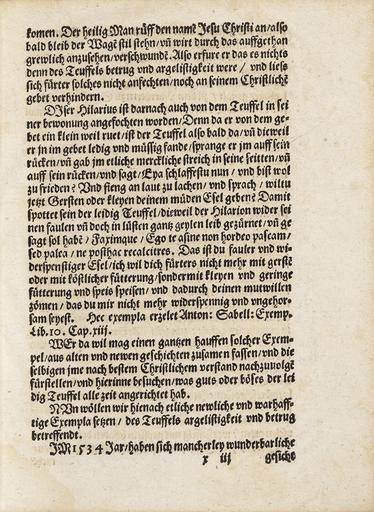 komen. Der heilig Man rüff den namẽ Jesu Christi an/also
bald bleib der Wagẽ stil stehn/vñ wirt durch das auffgethan
grewlich anzusehen/verschwundẽ. Also erfure er das es nichts
denn des Teuffels betrug vnd argelistigkeit were / vnd ließ
sich fürter solches nicht anfechten/noch an seinem Christlichẽ
gebet verhindern.
DJser Hilarius ist darnach auch von dem Teuffel in sei
ner bewonung angefochten worden/Denn da er von dem ge-
bet ein klein weil ruet/ist der Teuffel also bald da/vñ dieweil
er jn im gebet ledig vnd müssig fande/sprange er jm auff sein
rücken/vñ gab jm etliche merckliche streich in seine seitten/vñ
auff sein rücken/vnd sagt/Eya schlaffestu nun / vnd bist wol
zu frieden? Vnd fieng an laut zu lachen/vnd sprach/wiltu
jetzt Gersten oder kleyen deinem müden Esel geben? Damit
spottet sein der leidig Teuffel/dieweil der Hilarion wider sei
nen faulen vñ doch in lüsten gantz geylen leib gezürnet/vñ ge
sagt sol habẽ/Faximque/Ego te asine non hordeo pascam/
sed palea/ne posthac recalcitres. Das ist du fauler vnd wi-
derspenstiger Esel/ich wil dich fürters nicht mehr mit gerstẽ
oder mit köstlicher fütterung/sondermit kleyen vnd geringe
fütterung vnd speis speisen/vnd dadurch deinen mutwillen
zömen/das du mir nicht mehr widerspennig vnd vngehor-
sam seyest. Hec exempla erzelet Anton: Sabell: Exemp.
Lib. 10. Cap. xiij.
WEr da wil mag einen gantzen hauffen solcher Exem-
pel/aus alten vnd newen geschichten zusamen fassen/vnd die
selbigen jme nach bestem Christlichem verstand nachzuuolgẽ
fürstellen/vnd hierinne besuchen/was guts oder böses der lei
dig Teuffel alle zeit angerichtet hab.
NVn wöllen wir hienach etliche newliche vnd warhaff-
tige Exempla setzen/ des Teuffels argelistigkeit vnd betrug
betreffendt.
JM 1534 Jar/haben sich mancherley wunderbarliche
x iij gesicht